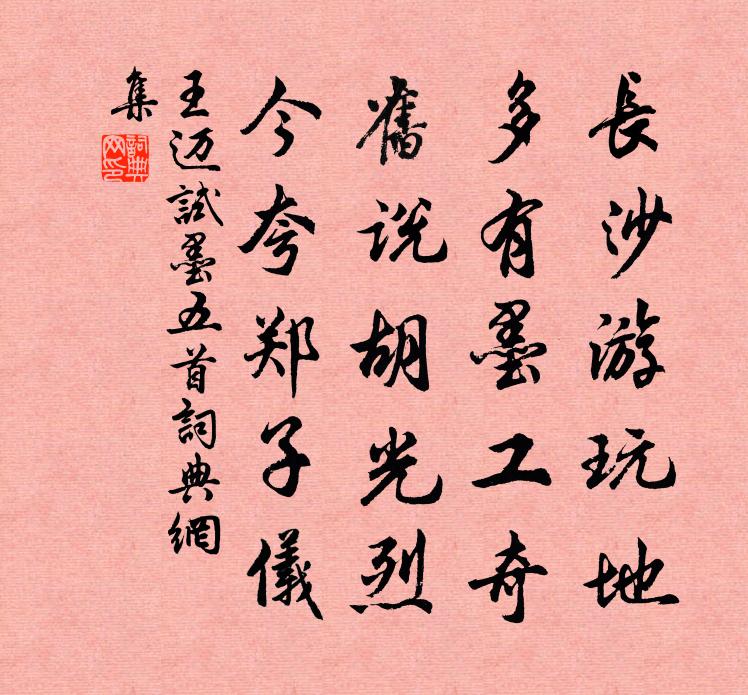 長沙游玩地
多有墨工奇
舊説胡光烈
今夸郑子儀
王迈試墨五首詞典網
集
詞典
网印